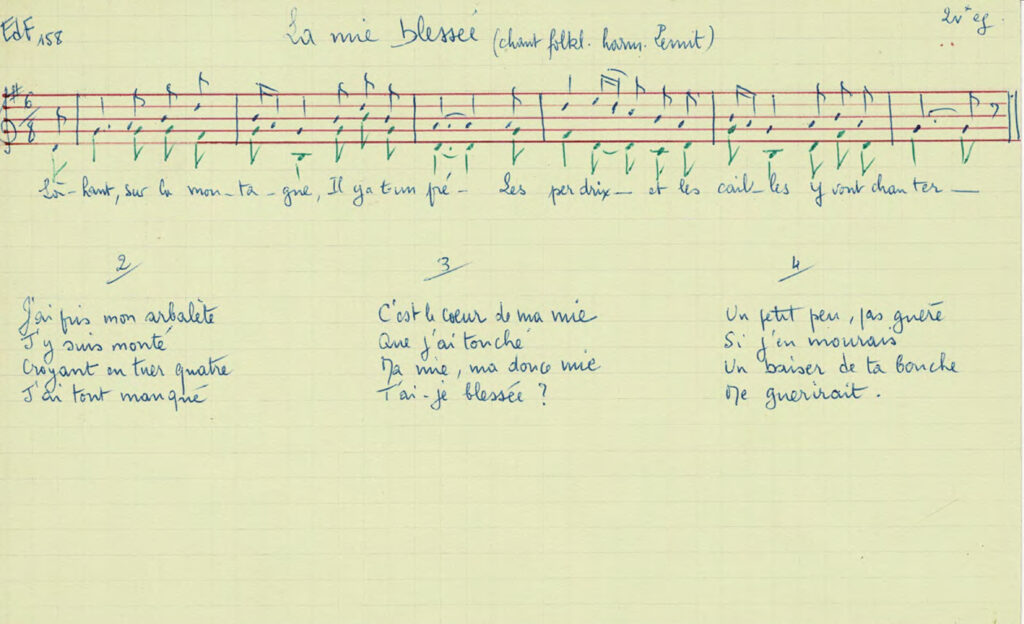 EdF 158
La mie blessée (chant folkl. harm. Pernit)
2v* eg.
6/8
Là-haut, sur la mon-ta-gne, Il y a t un pré- Les perdrix- et les cail-les y vont chanter-
2
J'ai pris mon arbalète
J'y suis monté
Croyant en tuer quatre
J'ai tout manqué
3
C'est le coeur de ma mie
Que j'ai touché
Ma mie, ma douce mie
T'ai-je blessée ?
4
Un petit peu, pas guère
Si j'en mourais
Un baiser de ta bouche
Me guerirait.